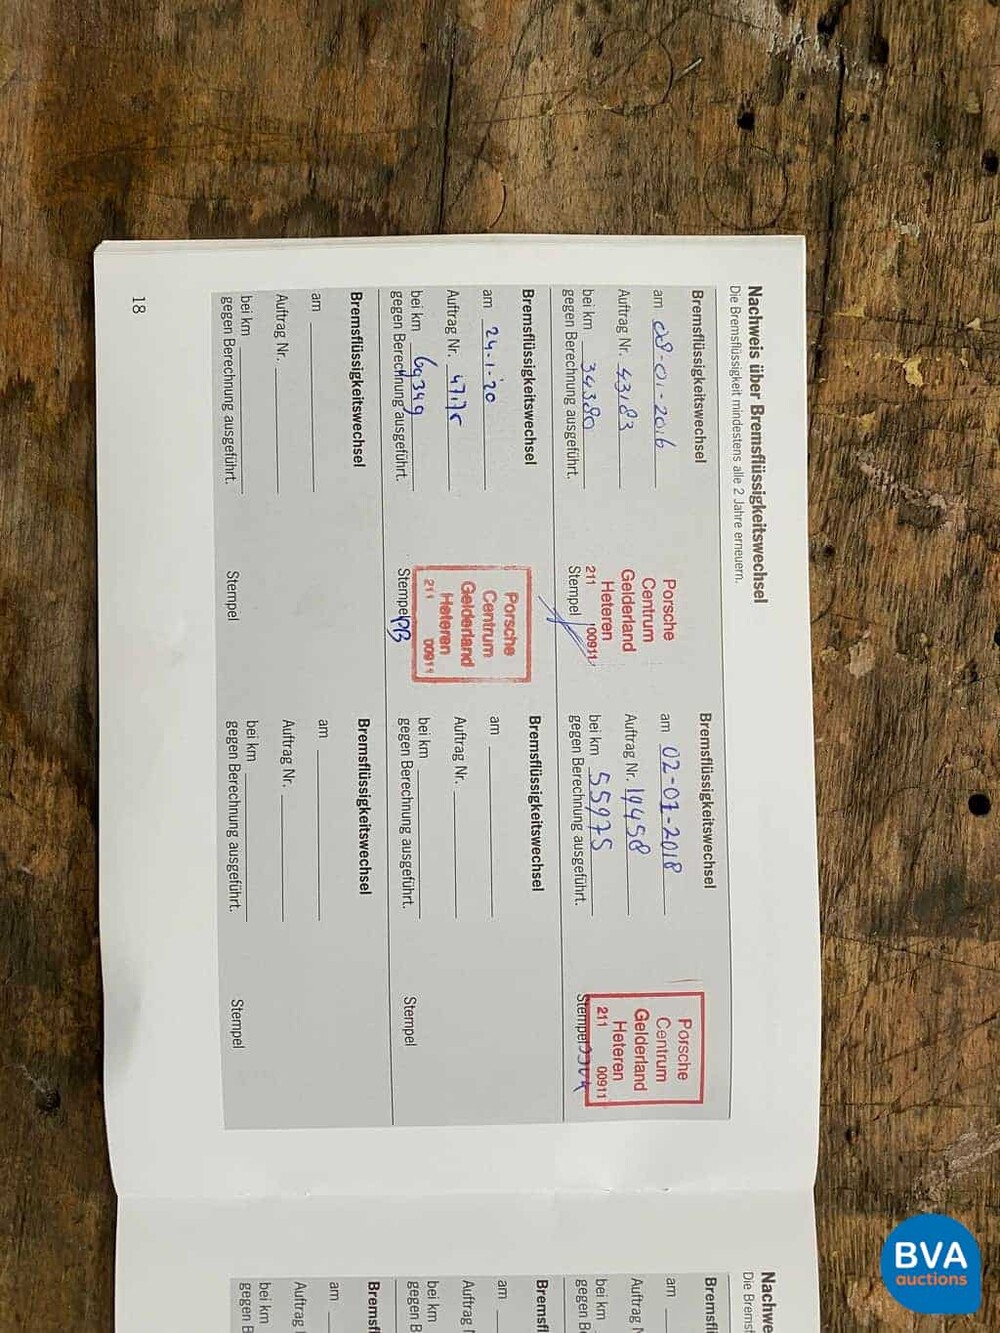 Nachweis über Bremsflüssigkeitswechsel
Die Bremsflüssigkeit mindestens alle 2 Jahre erneuern.
Bremsflüssigkeitswechsel
am 08-01-2016
Auftrag Nr. 43183
bei km 34380
gegen Berechnung ausgeführt.
Porsche
Centrum
Gelderland
Heteren
211 00911
Stempel
Bremsflüssigkeitswechsel
am 02-01-2018
Auftrag Nr. 19458
bei km 55975
gegen Berechnung ausgeführt.
Porsche
Centrum
Gelderland
Heteren
211 00911
Stempel
Bremsflüssigkeitswechsel
am 24-1-'20
Auftrag Nr.
bei km 69349
gegen Berechnung ausgeführt.
Porsche
Centrum
Gelderland
Heteren
211 00911
Stempel
Bremsflüssigkeitswechsel
am
Auftrag Nr.
bei km
gegen Berechnung ausgeführt.
Stempel
Bremsflüssigkeitswechsel
am
Auftrag Nr.
bei km
gegen Berechnung ausgeführt.
Stempel
Bremsflüssigkeitswechsel
am
Auftrag Nr.
bei km
gegen Berechnung ausgeführt.
Stempel
18
Nachwe
Die Bremsf
Bremsfl
am
Auftrag N
bei km
gegen B
Bremsfl
am
Auftrag N
bei km
gegen B
Bremsfl
am
Auftrag
bei km
gegen B
BVA
auctions